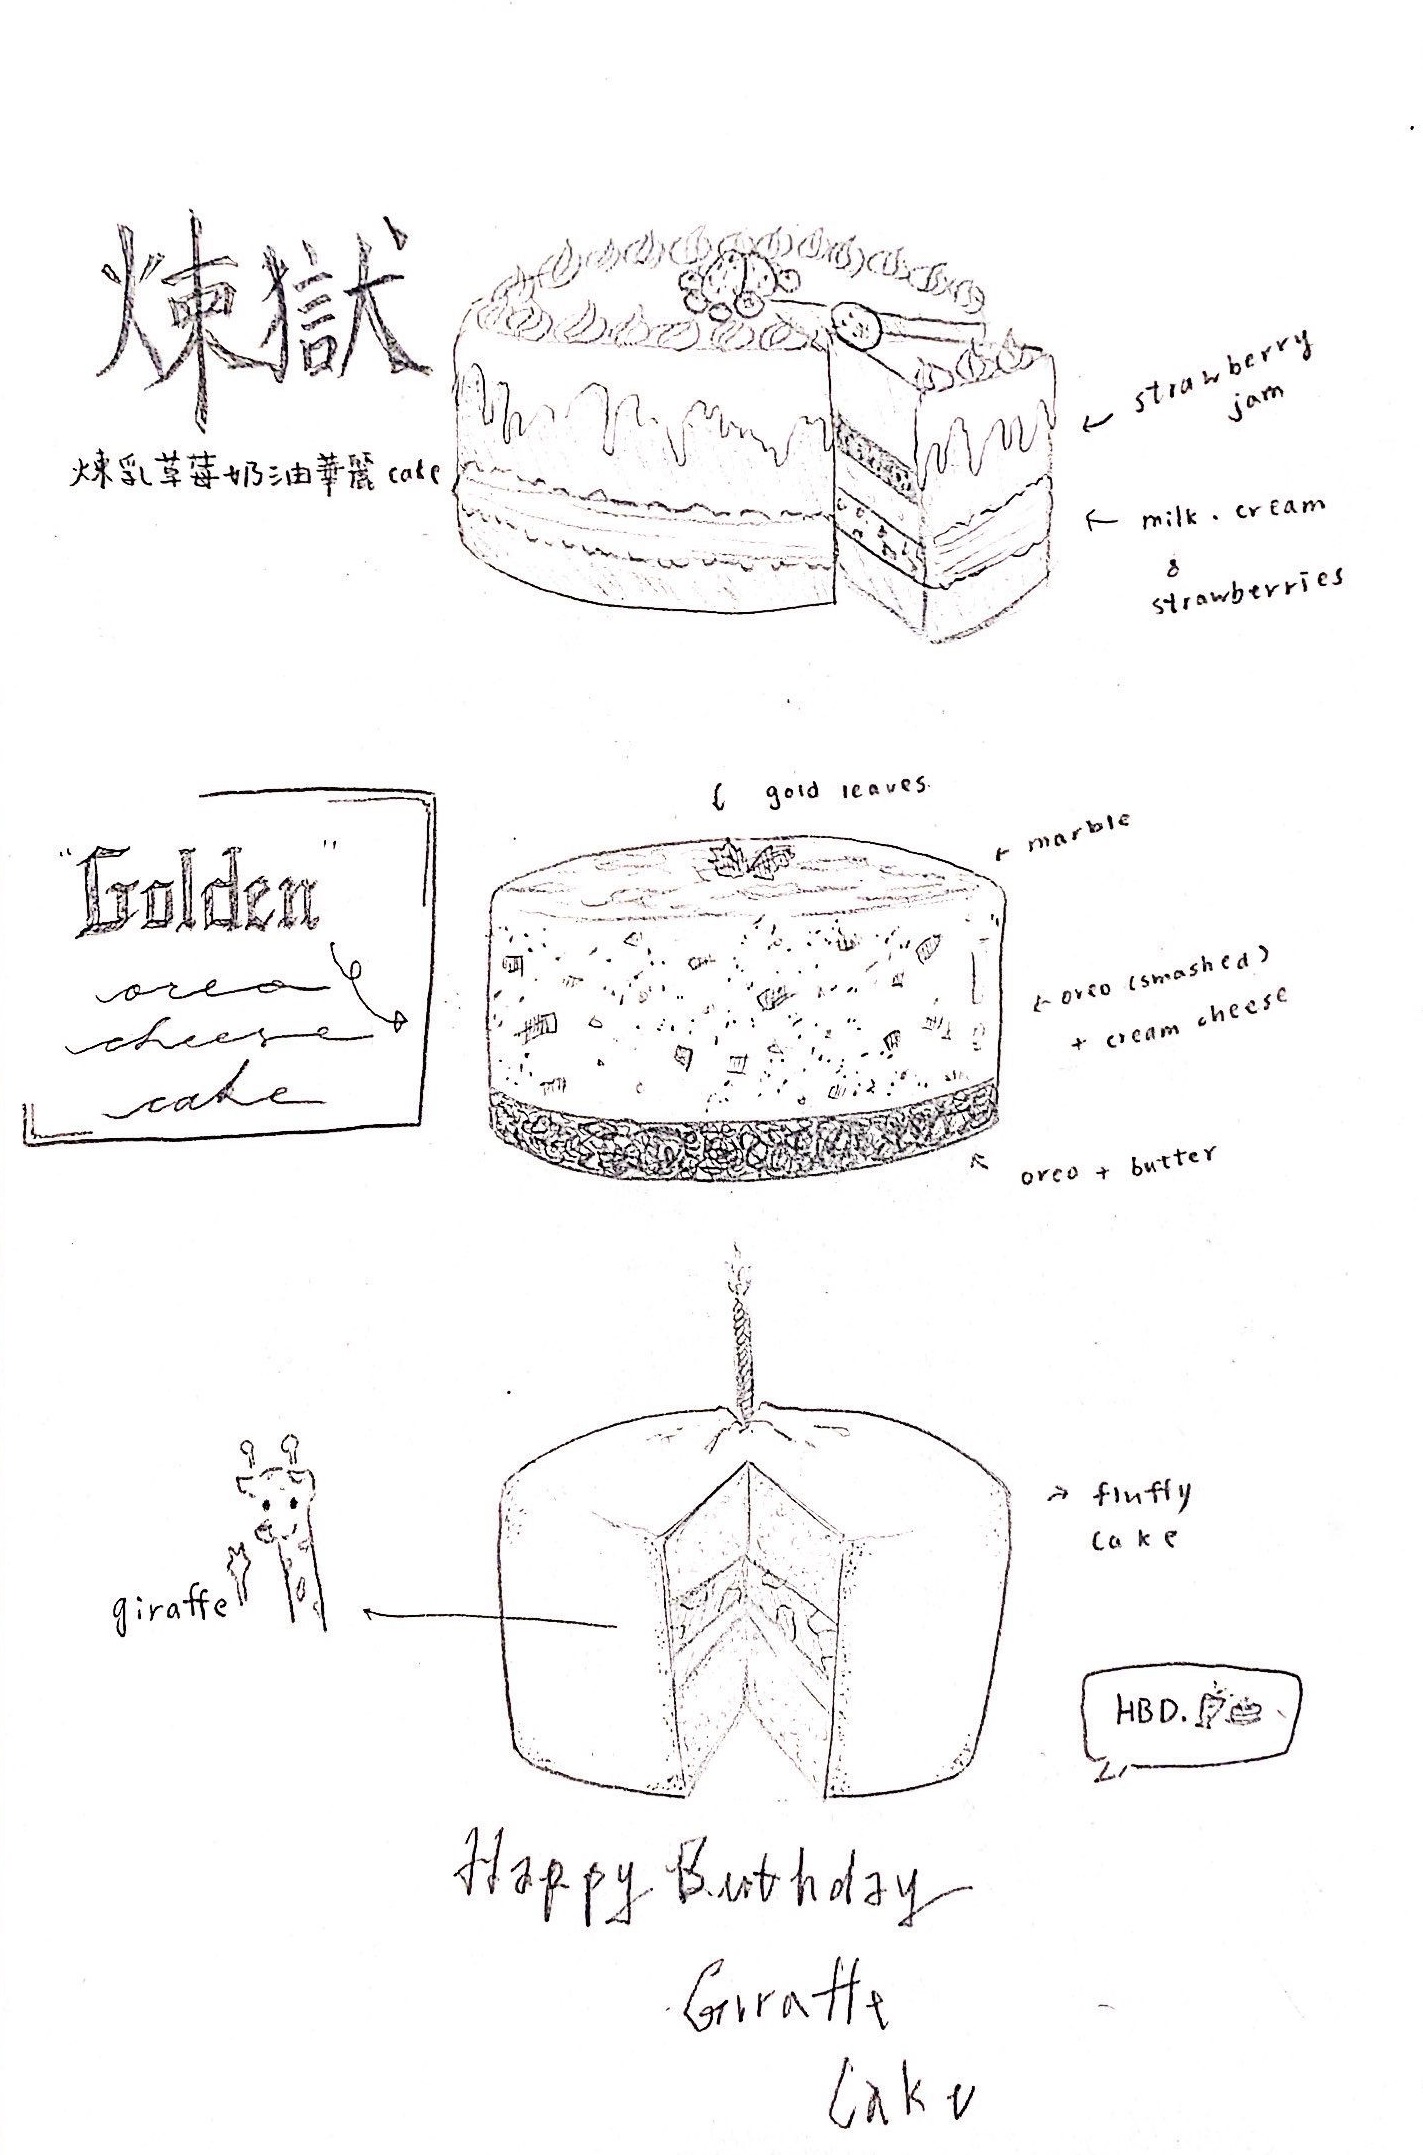 煉獄
煉乳草莓奶油華麗 cake
strawberry
jam
milk. cream
&
strawberries
gold leaves
"Golden"
oreo
cheese
cake
marble
oreo (smashed)
+ cream cheese
oreo + butter
giraffe
fluffy
cake
HBD.
Happy Birthday
Giraffe
Cake